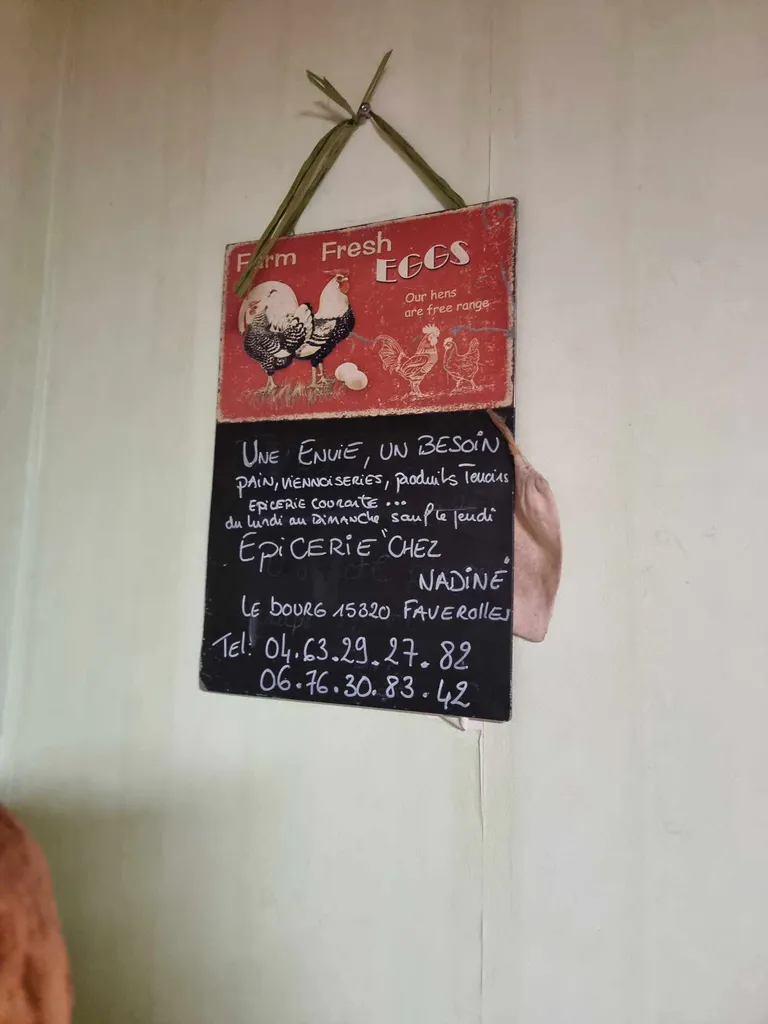 Farm Fresh
EGGS
Our hens
are free range
UNE ENVIE, UN BESOIN
PAIN, VIENNOISERIES, produits Terroirs
EPICERIE COURANTE...
du lundi au DIMANCHE sauf le jeudi
EPICERIE "CHEZ
NADINE"
LE BOURG 15320 FAVEROLLES
Tel: 04.63.29.27.82
06.76.30.83.42